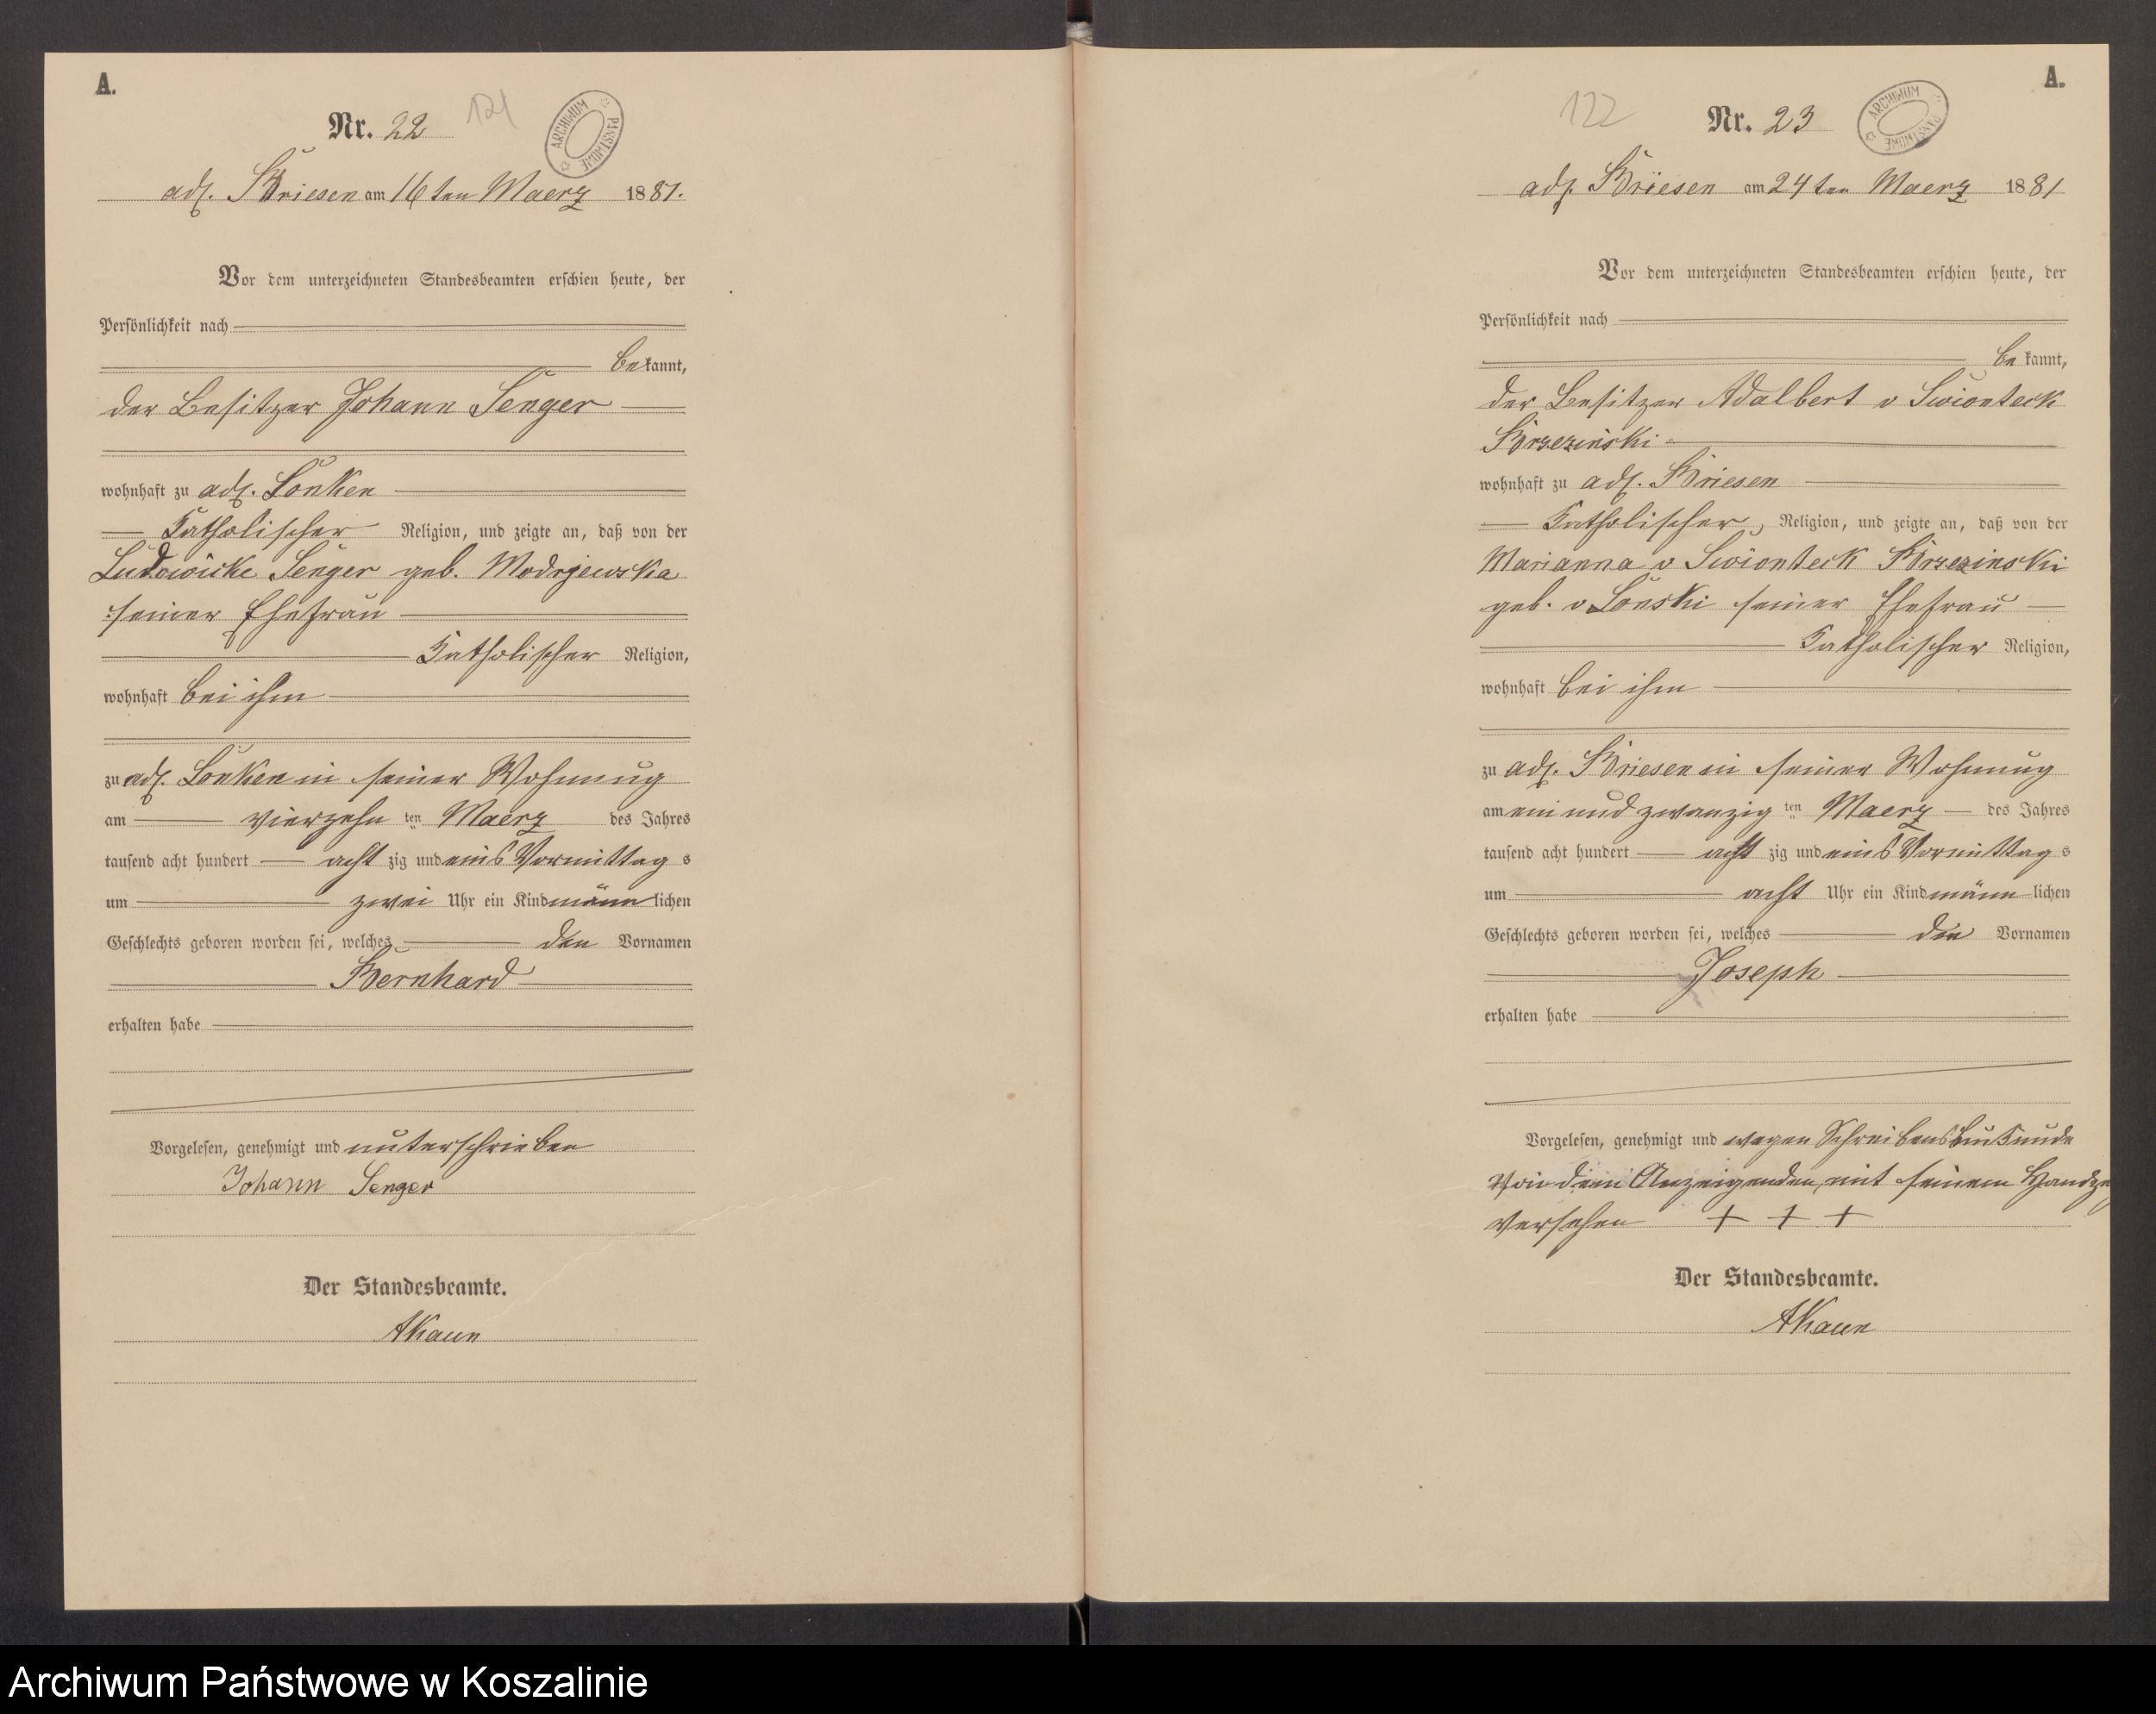 A.
Nr. 22
121
ARCHIWUM PAŃSTWOWE
adl. Briesen am 16ten Maerz 1881.
Vor dem unterzeichneten Standesbeamten erschien heute, der
Persönlichkeit nach
bekannt,
der Besitzer Johann Senger
wohnhaft zu adl. Lonken
Katholischer Religion, und zeigte an, daß von der
Ludowicke Senger geb. Modrzewska
seiner Ehefrau
Katholischer Religion,
wohnhaft bei ihm
zu adl. Lonken in seiner Wohnung
am vierzehn ten Maerz des Jahres
tausend acht hundert acht zig und eins Vormittag s
um zwei Uhr ein Kind männlichen
Geschlechts geboren worden sei, welches den Vornamen
Bernhard
erhalten habe
Vorgelesen, genehmigt und unterschrieben
Johann Senger
Der Standesbeamte.
AKaun
A.
122
Nr. 23
ARCHIWUM PAŃSTWOWE
adl. Briesen am 24ten Maerz 1881
Vor dem unterzeichneten Standesbeamten erschien heute, der
Persönlichkeit nach
bekannt,
der Besitzer Adalbert v Swionteck
Brzezinski
wohnhaft zu adl. Briesen
Katholischer, Religion, und zeigte an, daß von der
Marianna v Swionteck Brzezinski
geb. v Lonski seiner Ehefrau
Katholischer Religion,
wohnhaft bei ihm
zu adl. Briesen in seiner Wohnung
am ein und zwanzig ten Maerz des Jahres
tausend acht hundert acht zig und eins Vormittag s
um acht Uhr ein Kind männlichen
Geschlechts geboren worden sei, welches den Vornamen
Joseph
erhalten habe
Vorgelesen, genehmigt und wegen Schreibensunkunde
von dem Anzeigenden, mit seinem
versehen + + +
Der Standesbeamte.
AKaun
Archiwum Państwowe w Koszalinie